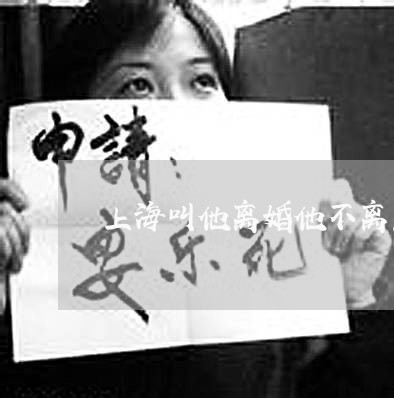 申請：
上海叫他离婚他不离
安乐死